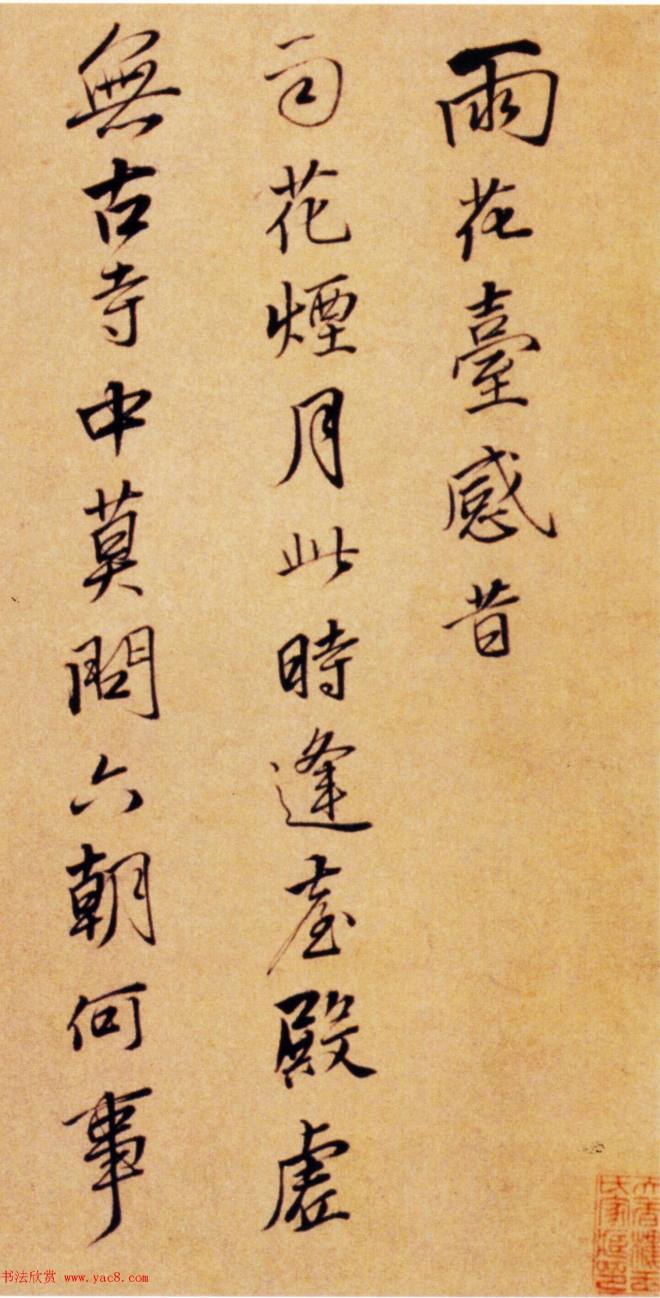 雨花臺感昔
雨花煙月此時逢臺殿虛
無古寺中莫問六朝何事
书法欣赏 www.yac8.com